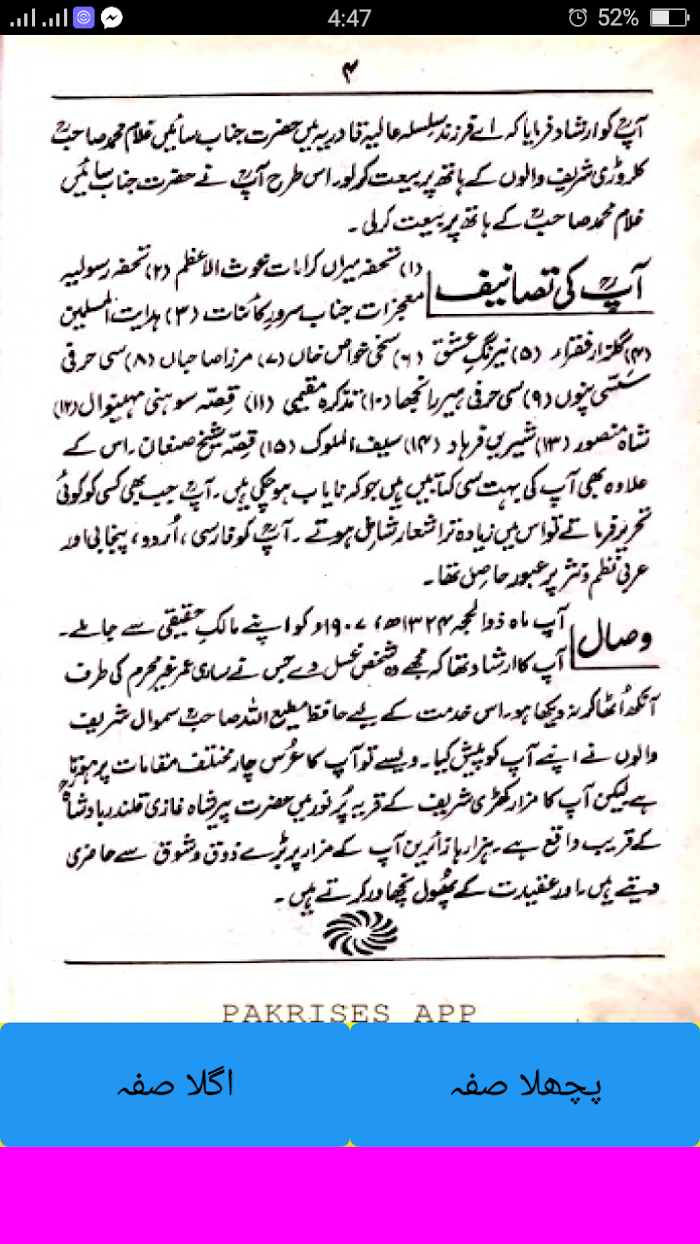 4:47
52%
۴
آپؒ کو ارشاد فرمایا کہ اے فرزند سلسلہ عالیہ قادریہ میں حضرت جناب سائیں غلام محمد صاحبؒ
کلروڑی شریف والوں کے ہاتھ پر بیعت کر لو۔ اس طرح آپؒ نے حضرت جناب سائیں
غلام محمد صاحبؒ کے ہاتھ پر بیعت کر لی۔
آپؒ کی تصانیف
(۱) تحفہ میراں کرامات غوث الاعظم (۲) تحفہ رسولیہ
معجزات جناب سرور کائنات (۳) ہدایت المسلمین
(۴) گلزار فقراء (۵) نیرنگِ عشق (۶) سخی خواص خاں (۷) مرزا صاحباں (۸) سی حرفی
سسّی پنوں (۹) سی حرفی ہیر رانجھا (۱۰) تذکرہ مقیمی (۱۱) قِصّہ سوہنی مہینوال (۱۲)
شاہ منصور (۱۳) شیریں فرہاد (۱۴) سیف الملوک (۱۵) قِصّہ شیخ صنعان۔ اس کے
علاوہ بھی آپ کی بہت سی کتابیں ہیں جو کہ نایاب ہو چکی ہیں۔ آپؒ جب بھی کسی کو کوئی
تحریر فرماتے تو اس میں زیادہ تر اشعار شامل ہوتے۔ آپؒ کو فارسی، اُردو، پنجابی اور
عربی نظم و نثر پر عبور حاصل تھا۔
وصال
آپ ماہ ذوالحجہ ۱۳۲۴ھ، ۱۹۰۷ء کو اپنے مالکِ حقیقی سے جا ملے۔
آپ کا ارشاد تھا کہ مجھے وہ شخص غسل دے جس نے ساری عمر غیر محرم کی طرف
آنکھ اُٹھا کر نہ دیکھا ہو۔ اس خدمت کے لیے حافظ مطیع اللہ صاحبؒ سموال شریف
والوں نے اپنے آپ کو پیش کیا۔ ویسے تو آپ کا عُرس چار مختلف مقامات پر ہوتا
ہے لیکن آپ کا مزار کھڑی شریف کے قریہ پُر نور میں حضرت پیر شاہ غازی قلندر بادشاہؒ
کے قریب واقع ہے۔ ہزارہا زائرین آپ کے مزار پر بڑے ذوق و شوق سے حاضری
دیتے ہیں۔ اور عقیدت کے پھول نچھاور کرتے ہیں۔
PAKRISES APP
پچھلا صفہ
اگلا صفہ